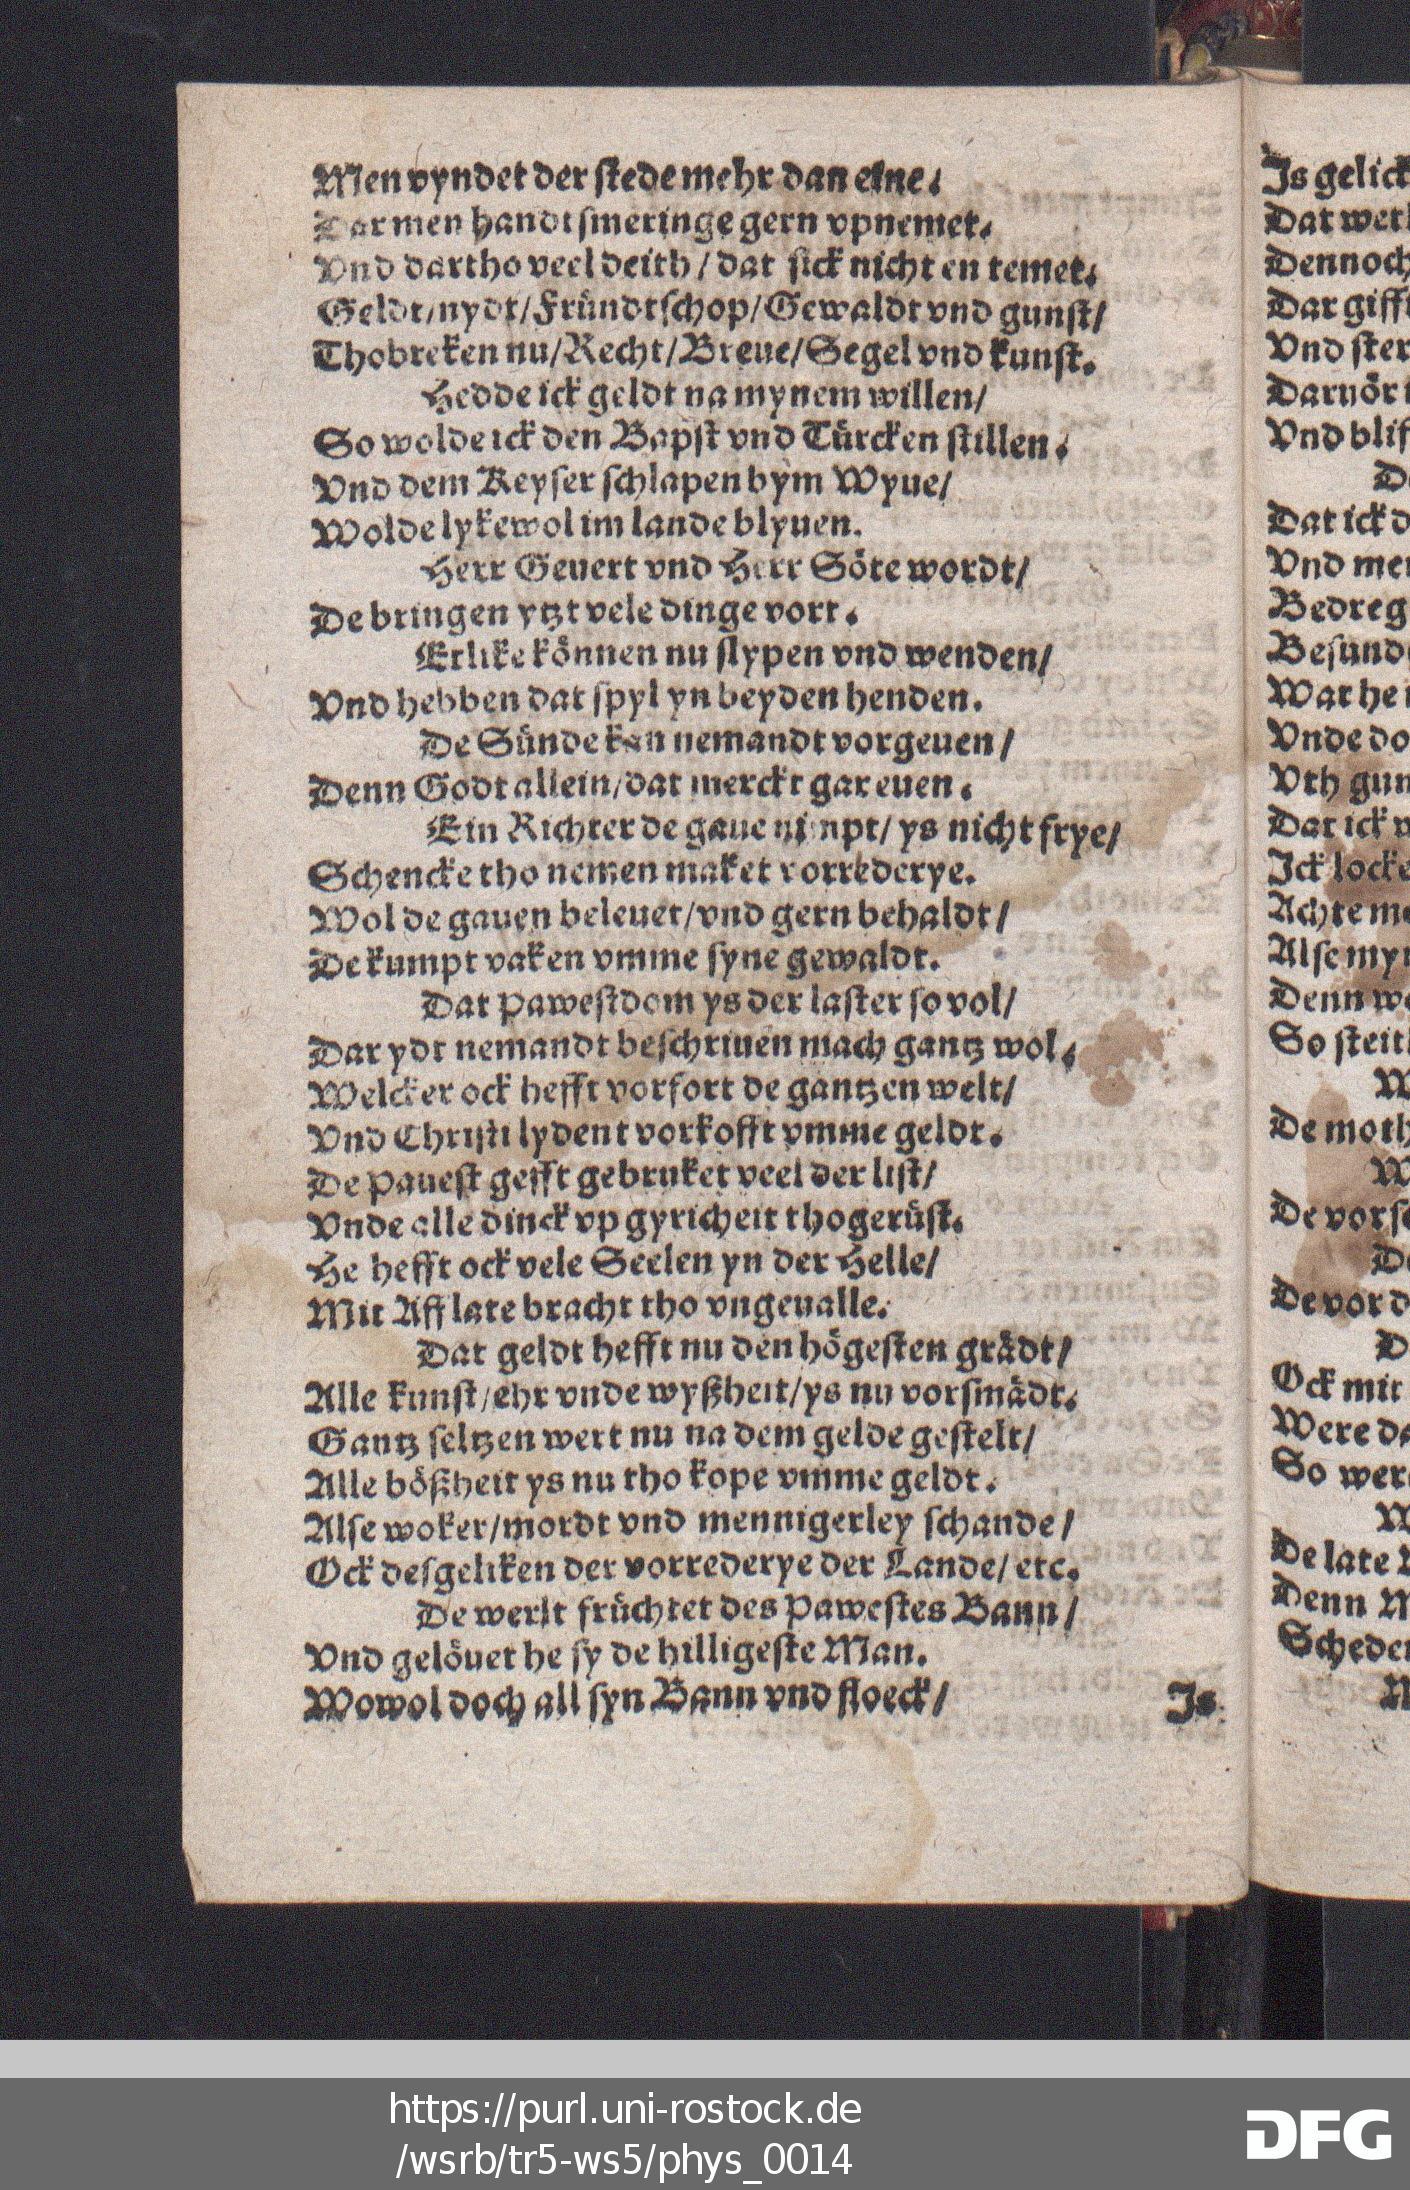 Men vyndet der stede mehr dan eine.
Dar men handtsmeringe gern vpnemet.
Vnd dartho veel deith / dat sick nicht en temet.
Geldt/nydt/Fründtschop/Gewaldt vnd gunst/
Thobreken nu/Recht/Breue/Segel vnd kunst.
Hedde ick geldt na mynem willen/
So wolde ick den Bapst vnd Türcken stillen.
Vnd dem Keyser schlapen bym Wyue/
Wolde lykewol im lande blyuen.
Herr Geuert vnd Herr Söte wordt/
De bringen ytzt vele dinge vort.
Etlike können nu slypen vnd wenden/
Vnd hebben dat spyl yn beyden henden.
De Sünde kan nemandt vorgeuen/
Denn Godt allein/dat merckt gar euen.
Ein Richter de gaue nimpt/ ys nicht frye/
Schencke tho nemen maket vorrederye.
Wol de gauen beleuet/vnd gern behaldt/
De kumpt vaken vmme syne gewaldt.
Dat pawestdom ys der laster so vol/
Dar ydt nemandt beschriuen mach gantz wol.
Welcker ock hefft vorfort de gantzen welt/
Vnd Christi lydent vorkofft vmme geldt.
De pauest gefft gebruket veel der list/
Vnde alle dinck vp gyricheit thogerüst.
He hefft ock vele Seelen yn der Helle/
Mit Afflate bracht tho vngeualle.
Dat geldt hefft nu den högesten grädt/
Alle kunst/ehr vnde wyßheit/ys nu vorsmädt.
Gantz seltzen wert nu na dem gelde gestelt/
Alle bößheit ys nu tho kope vmme geldt.
Alse woker/mordt vnd mennigerley schande/
Ock desgeliken der vorrederye der Lande/ etc.
De werlt früchtet des Pawestes Bann/
Vnd gelöuet he sy de hilligeste Man.
Wowol doch all syn Bann vnd floeck/
Is
Is gelick
Dat
Dennoch
Dar gifft
Vnd
Daruör
Vnd
Dat ick
Vnd
Wat he
Vnde
Vth
Dat ick
Ick locke
Achte
Alse
Denn
So steith
De
De
Ock mit
Were
So
De late
Denn
https://purl.uni-rostock.de
/wsrb/tr5-ws5/phys_0014
DFG